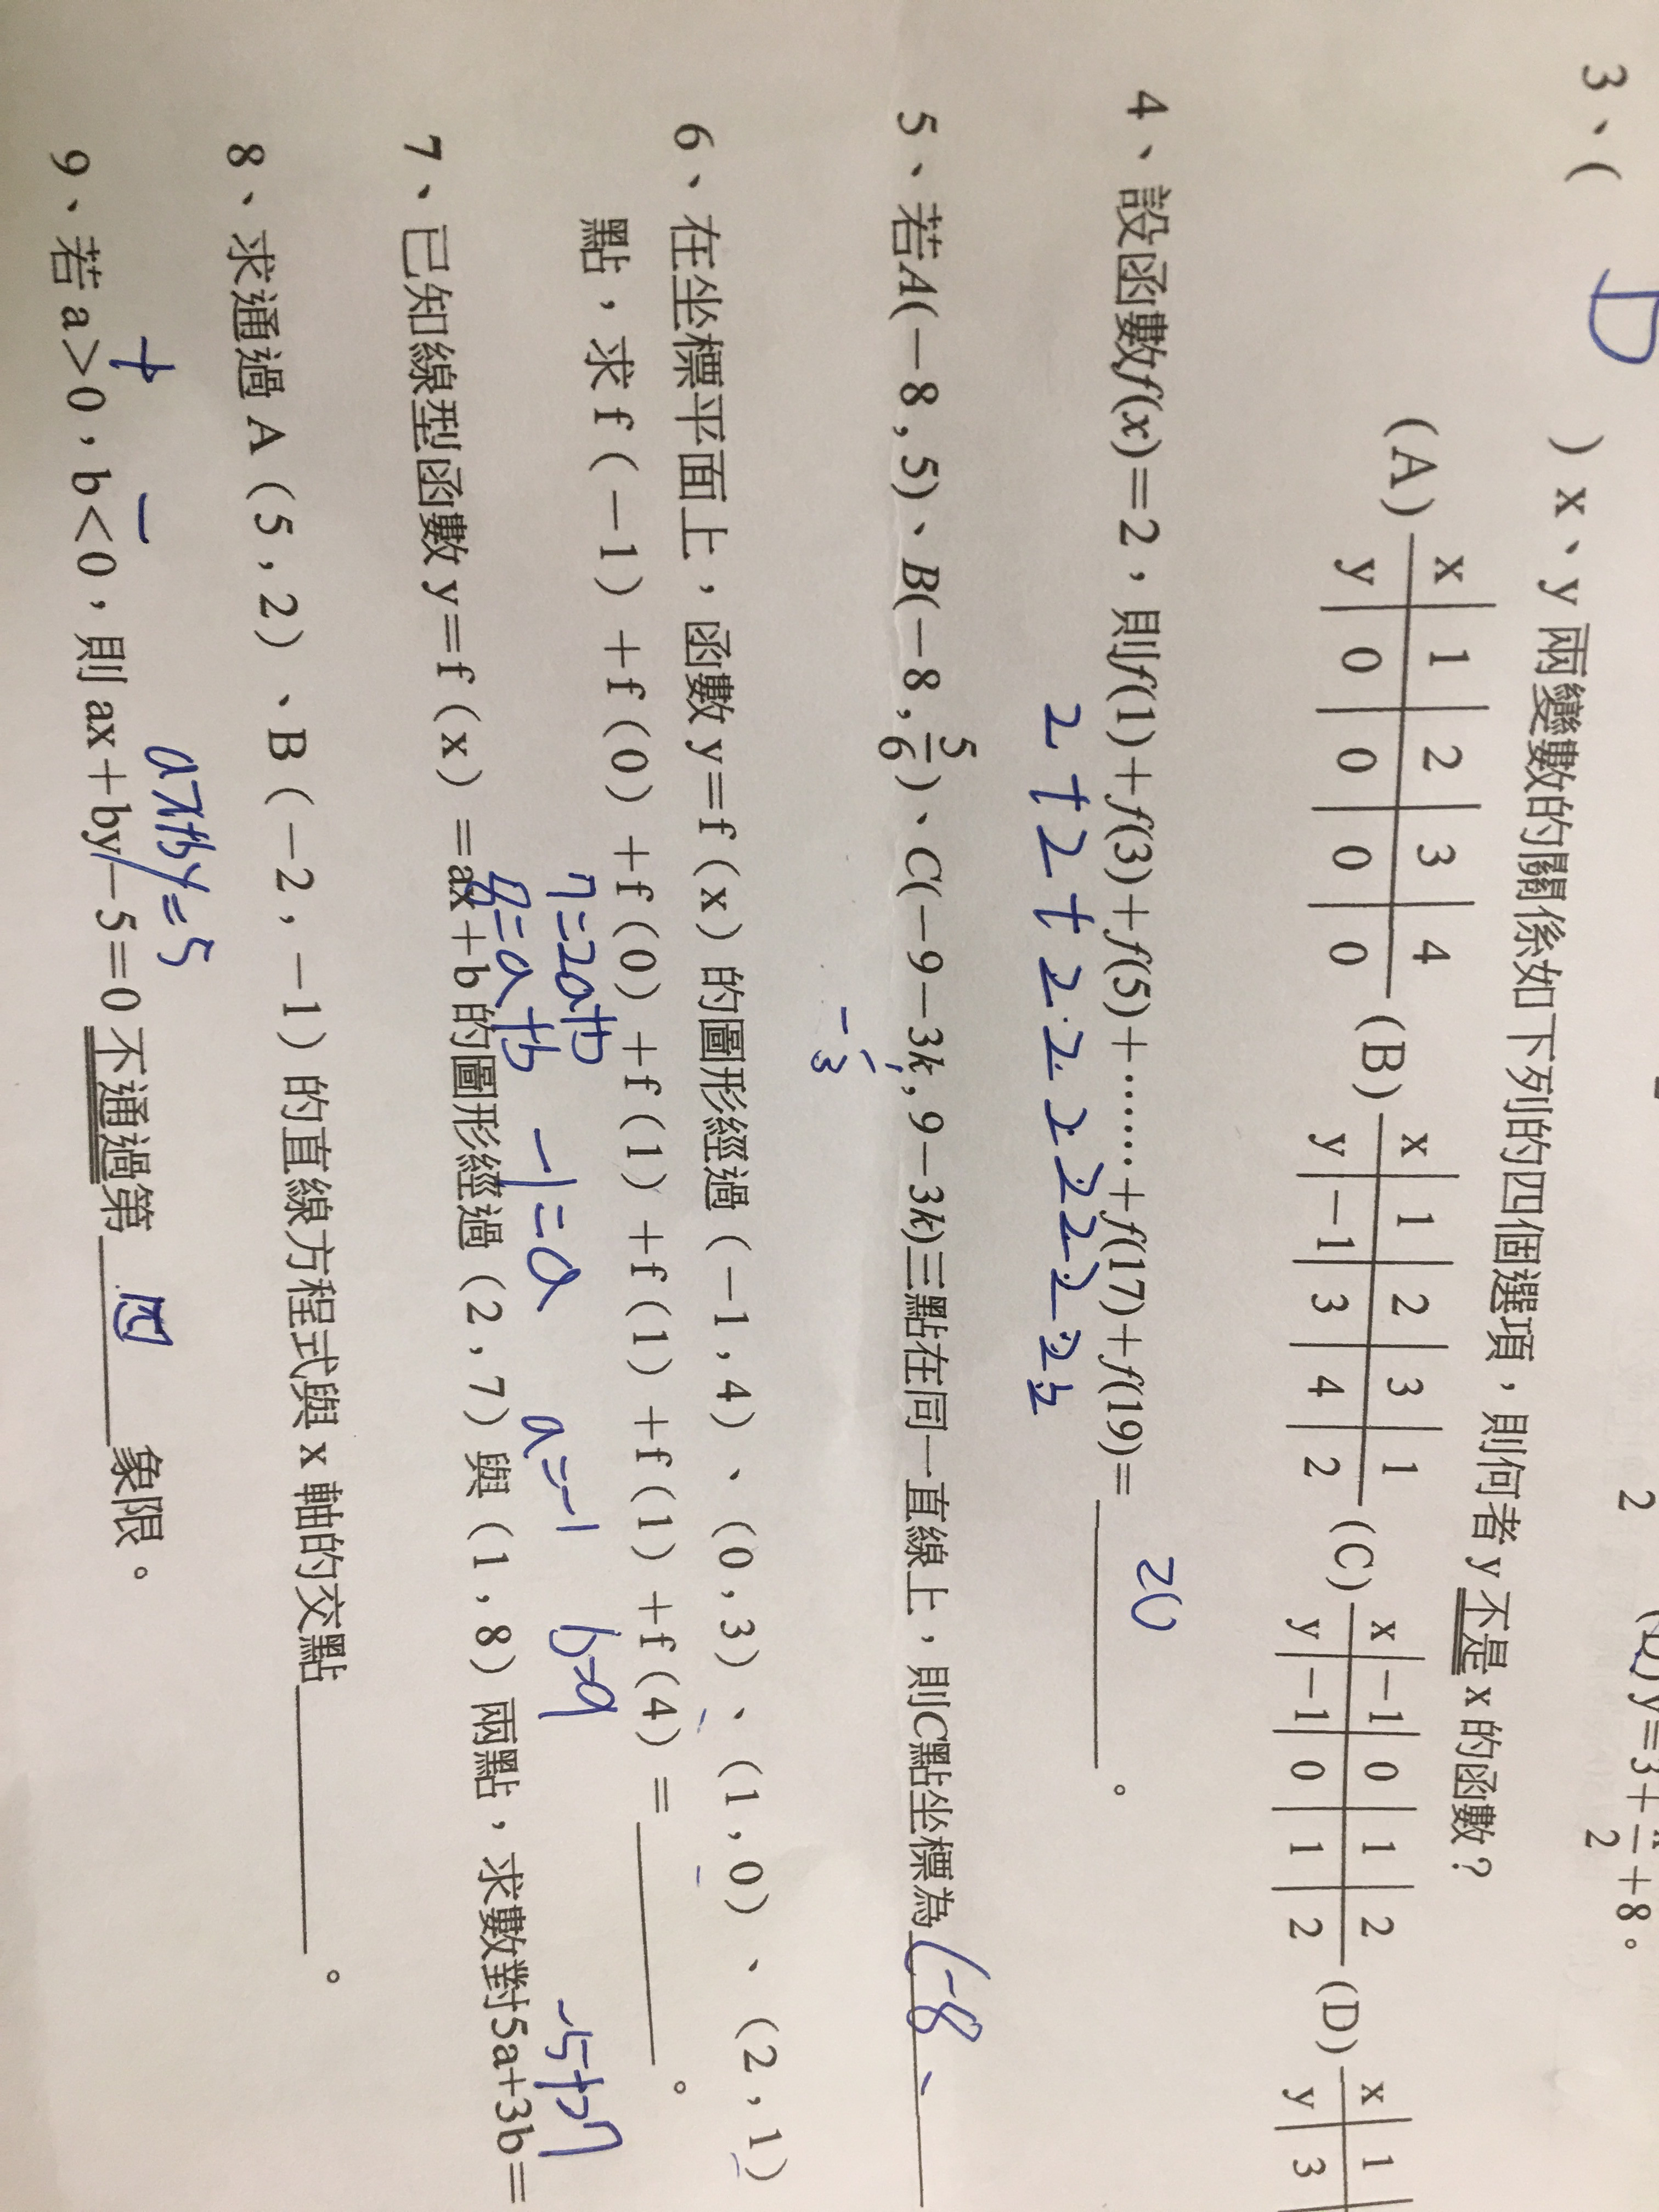 2 (D) y=3+ 2 +8。
3、( D ) x、y兩變數的關係如下列的四個選項,則何者y不是x的函數?
(A) x 1 2 3 4 (B) x 1 2 3 1 (C) x −1 0 1 2 (D) x 1
y 0 0 0 0 y −1 3 4 2 y −1 0 1 2 y 3
4、設函數f(x)=2,則f(1)+f(3)+f(5)+……+f(17)+f(19)= 20 。
2+2+2.2.2.2.2.2.2.2
5、若A(−8,5)、B(−8,5/6)、C(−9−3k,9−3k)三點在同一直線上,則C點坐標為 (-8、
6、在坐標平面上,函數y=f(x)的圖形經過(−1,4)、(0,3)、(1,0)、(2,1)
點,求f(−1)+f(0)+f(0)+f(1)+f(1)+f(1)+f(4)= 。
7=2a+b a=-1 b=9
8=a+b -1=a -5+27
7、已知線型函數y=f(x)=ax+b的圖形經過(2,7)與(1,8)兩點,求數對5a+3b=
8、求通過A(5,2)、B(−2,−1)的直線方程式與x軸的交點 。
+ − ax+by=5
9、若a>0,b<0,則ax+by−5=0不通過第 四 象限。